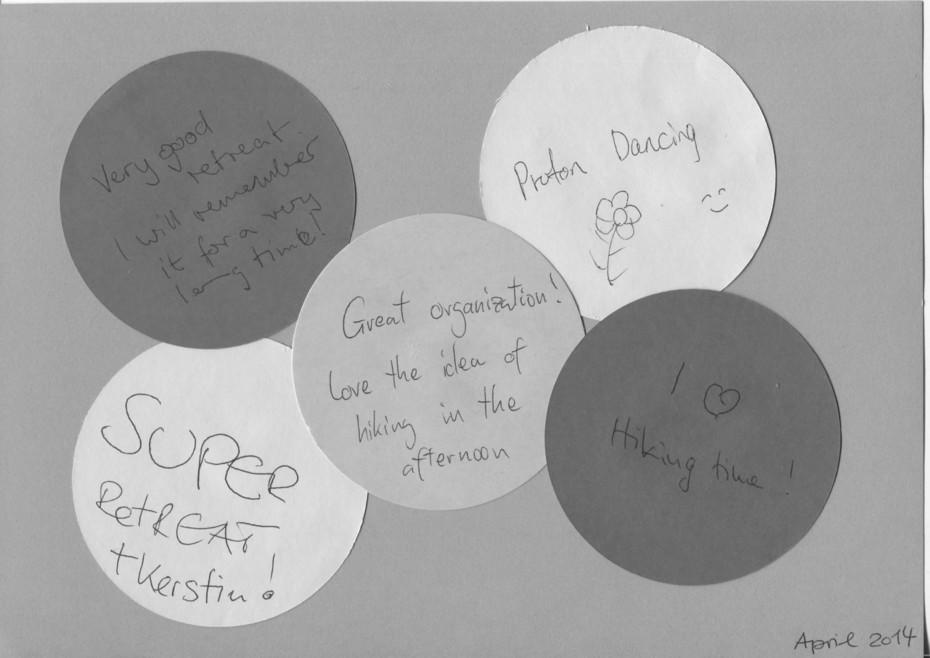 Very good
retreat
I will remember
it for a very
long time!
Proton Dancing
Great organization!
Love the idea of
hiking in the
afternoon
SUPER
RetREAT
+Kerstin!
I ♡
Hiking time!
April 2014